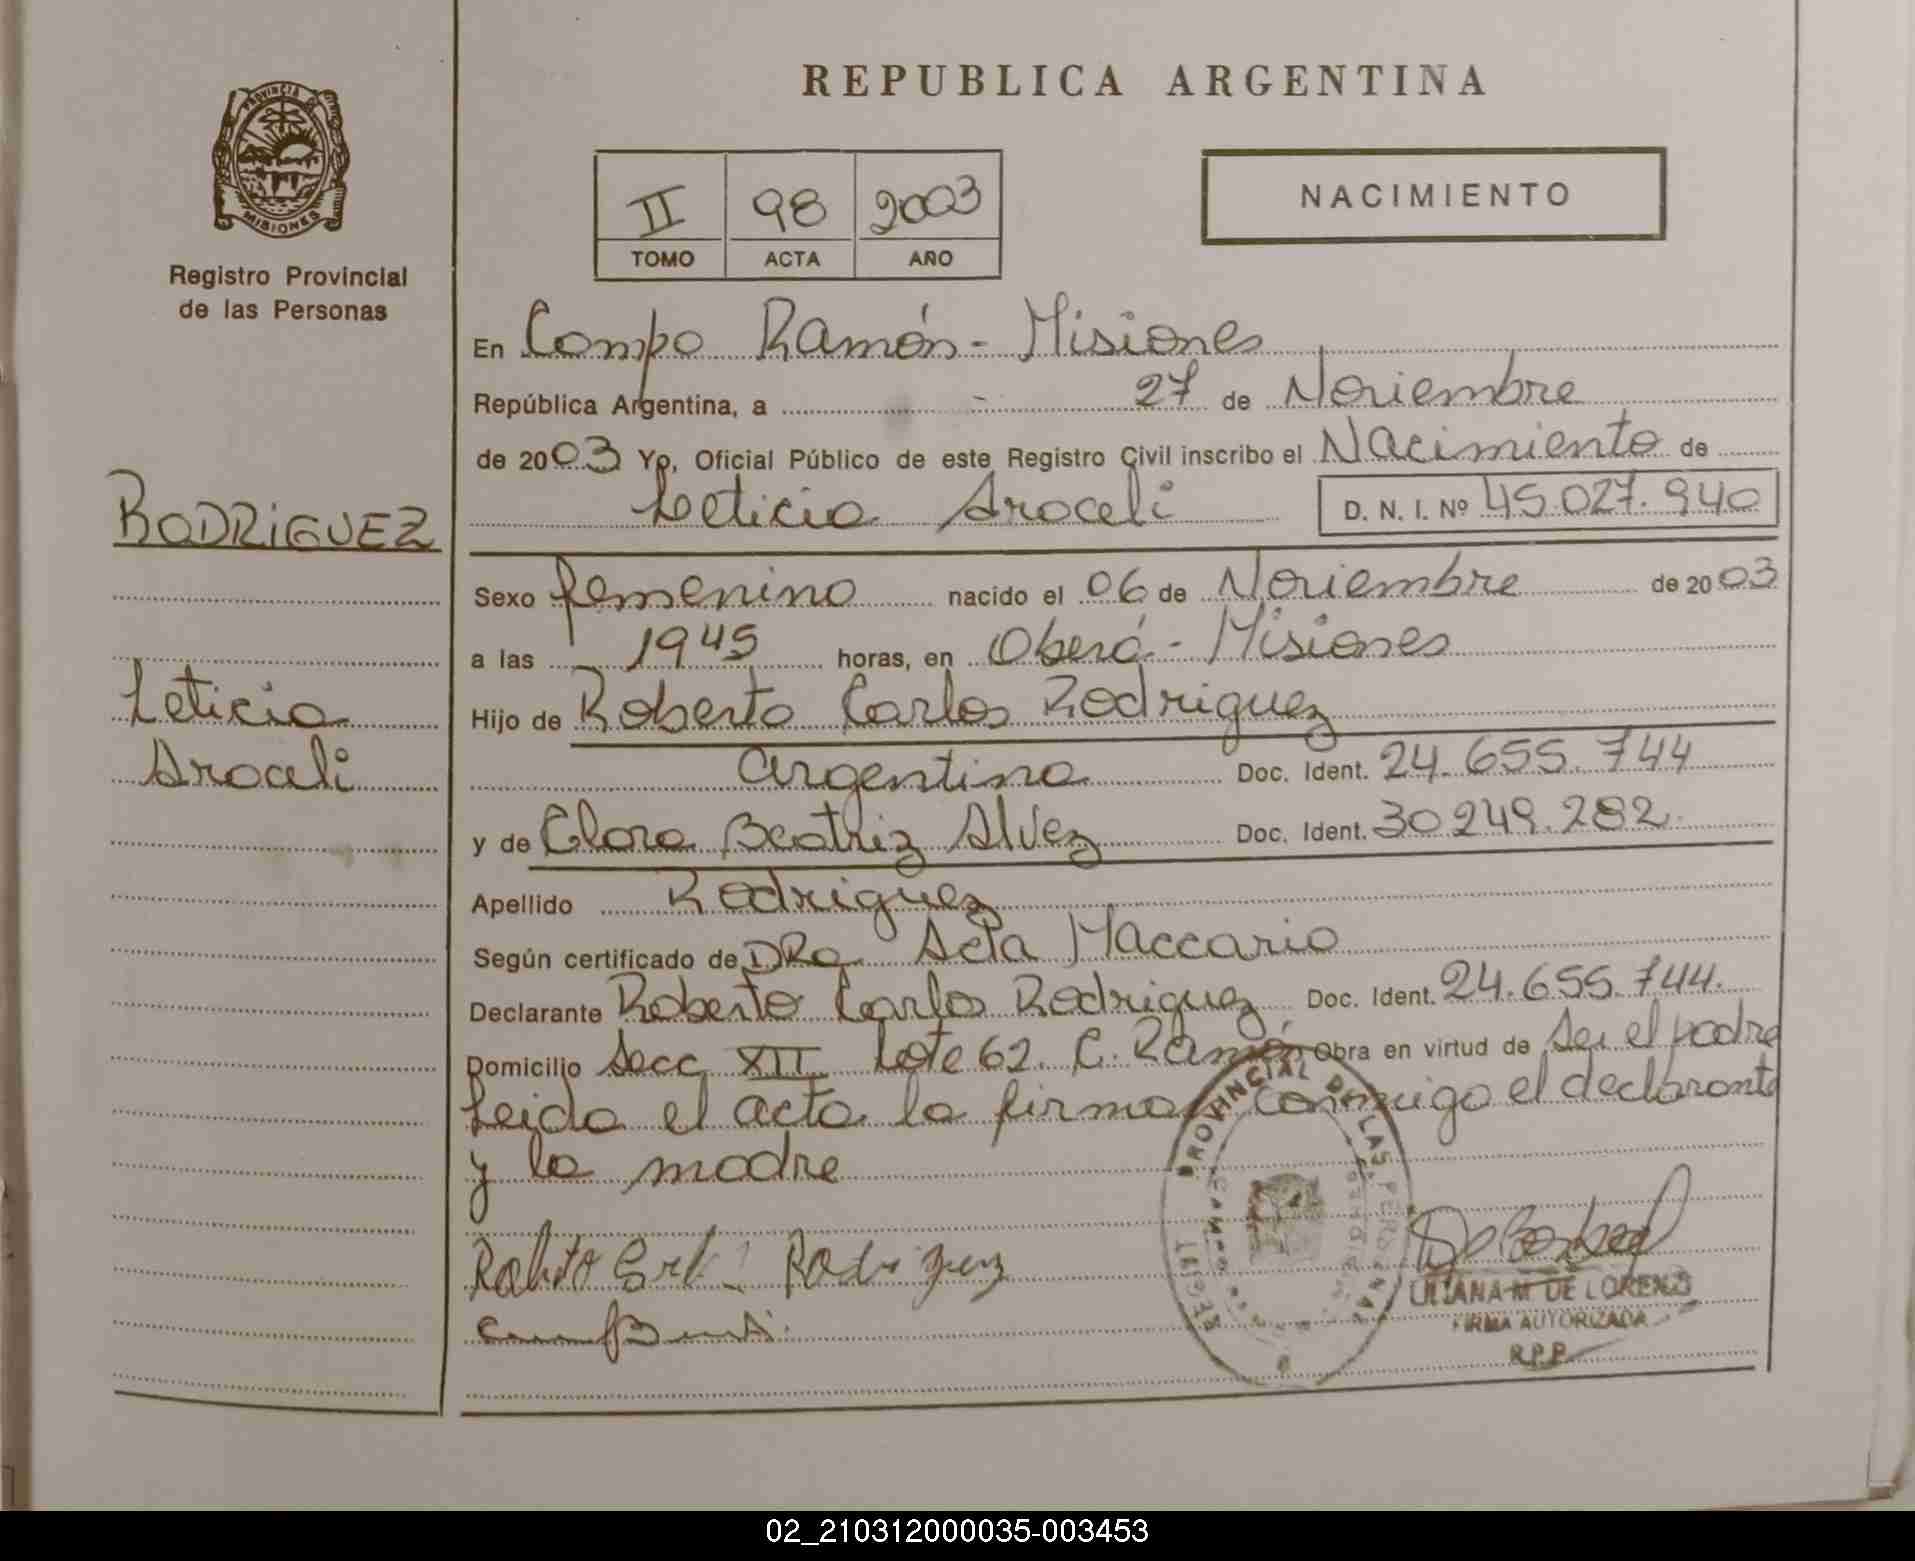 REPUBLICA ARGENTINA
PROVINCIA DE
MISIONES
Registro Provincial
de las Personas
II 98 2003
TOMO ACTA AÑO
NACIMIENTO
En Campo Ramón - Misiones
República Argentina, a - 27 de Noviembre
de 2003 Yo, Oficial Público de este Registro Civil inscribo el Nacimiento de
Leticia Araceli D. N. I. Nº 45.027.940
RODRIGUEZ
Sexo femenino nacido el 06 de Noviembre de 2003
a las 1945 horas, en Oberá - Misiones
Leticia
Araceli
Hijo de Roberto Carlos Rodriguez
argentina Doc. Ident. 24.655.744
y de Clara Beatriz Alvez Doc. Ident. 30.249.282.
Apellido Rodriguez
Según certificado de DRa Maccario
Declarante Roberto Carlos Rodriguez Doc. Ident. 24.655.744.
Domicilio Secc XII Lote 62. C. Ramón Obra en virtud de Ser el padre
Leida el acta la firma conmigo el declarante
y la madre
PROVINCIAL DE LAS PERSONAS
Rodriguez
LILIANA M DE LORENZO
FIRMA AUTORIZADA
R.P.P.
02_210312000035-003453